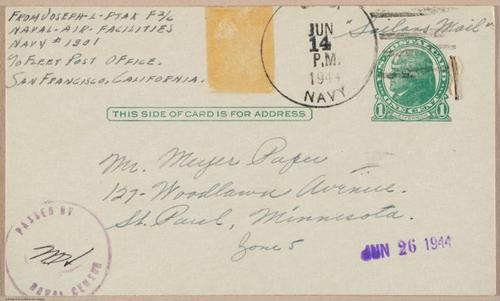 FROM JOSEPH-L-PTAK F 3/c
NAVAL-AIR-FACILITIES
NAVY # 1301
c/o FLEET POST OFFICE.
SAN FRANCISCO, CALIFORNIA.
JUN
14
P.M.
1944
NAVY
"Sailors Mail"
U.S. POSTAL CARD
1 ONE CENT 1
JEFFERSON
THIS SIDE OF CARD IS FOR ADDRESS
Mr. Meyer Papu
127-Woodlawn Avenue.
St. Paul, Minnesota.
Zone 5
PASSED BY
NAVAL CENSOR
JUN 26 1944